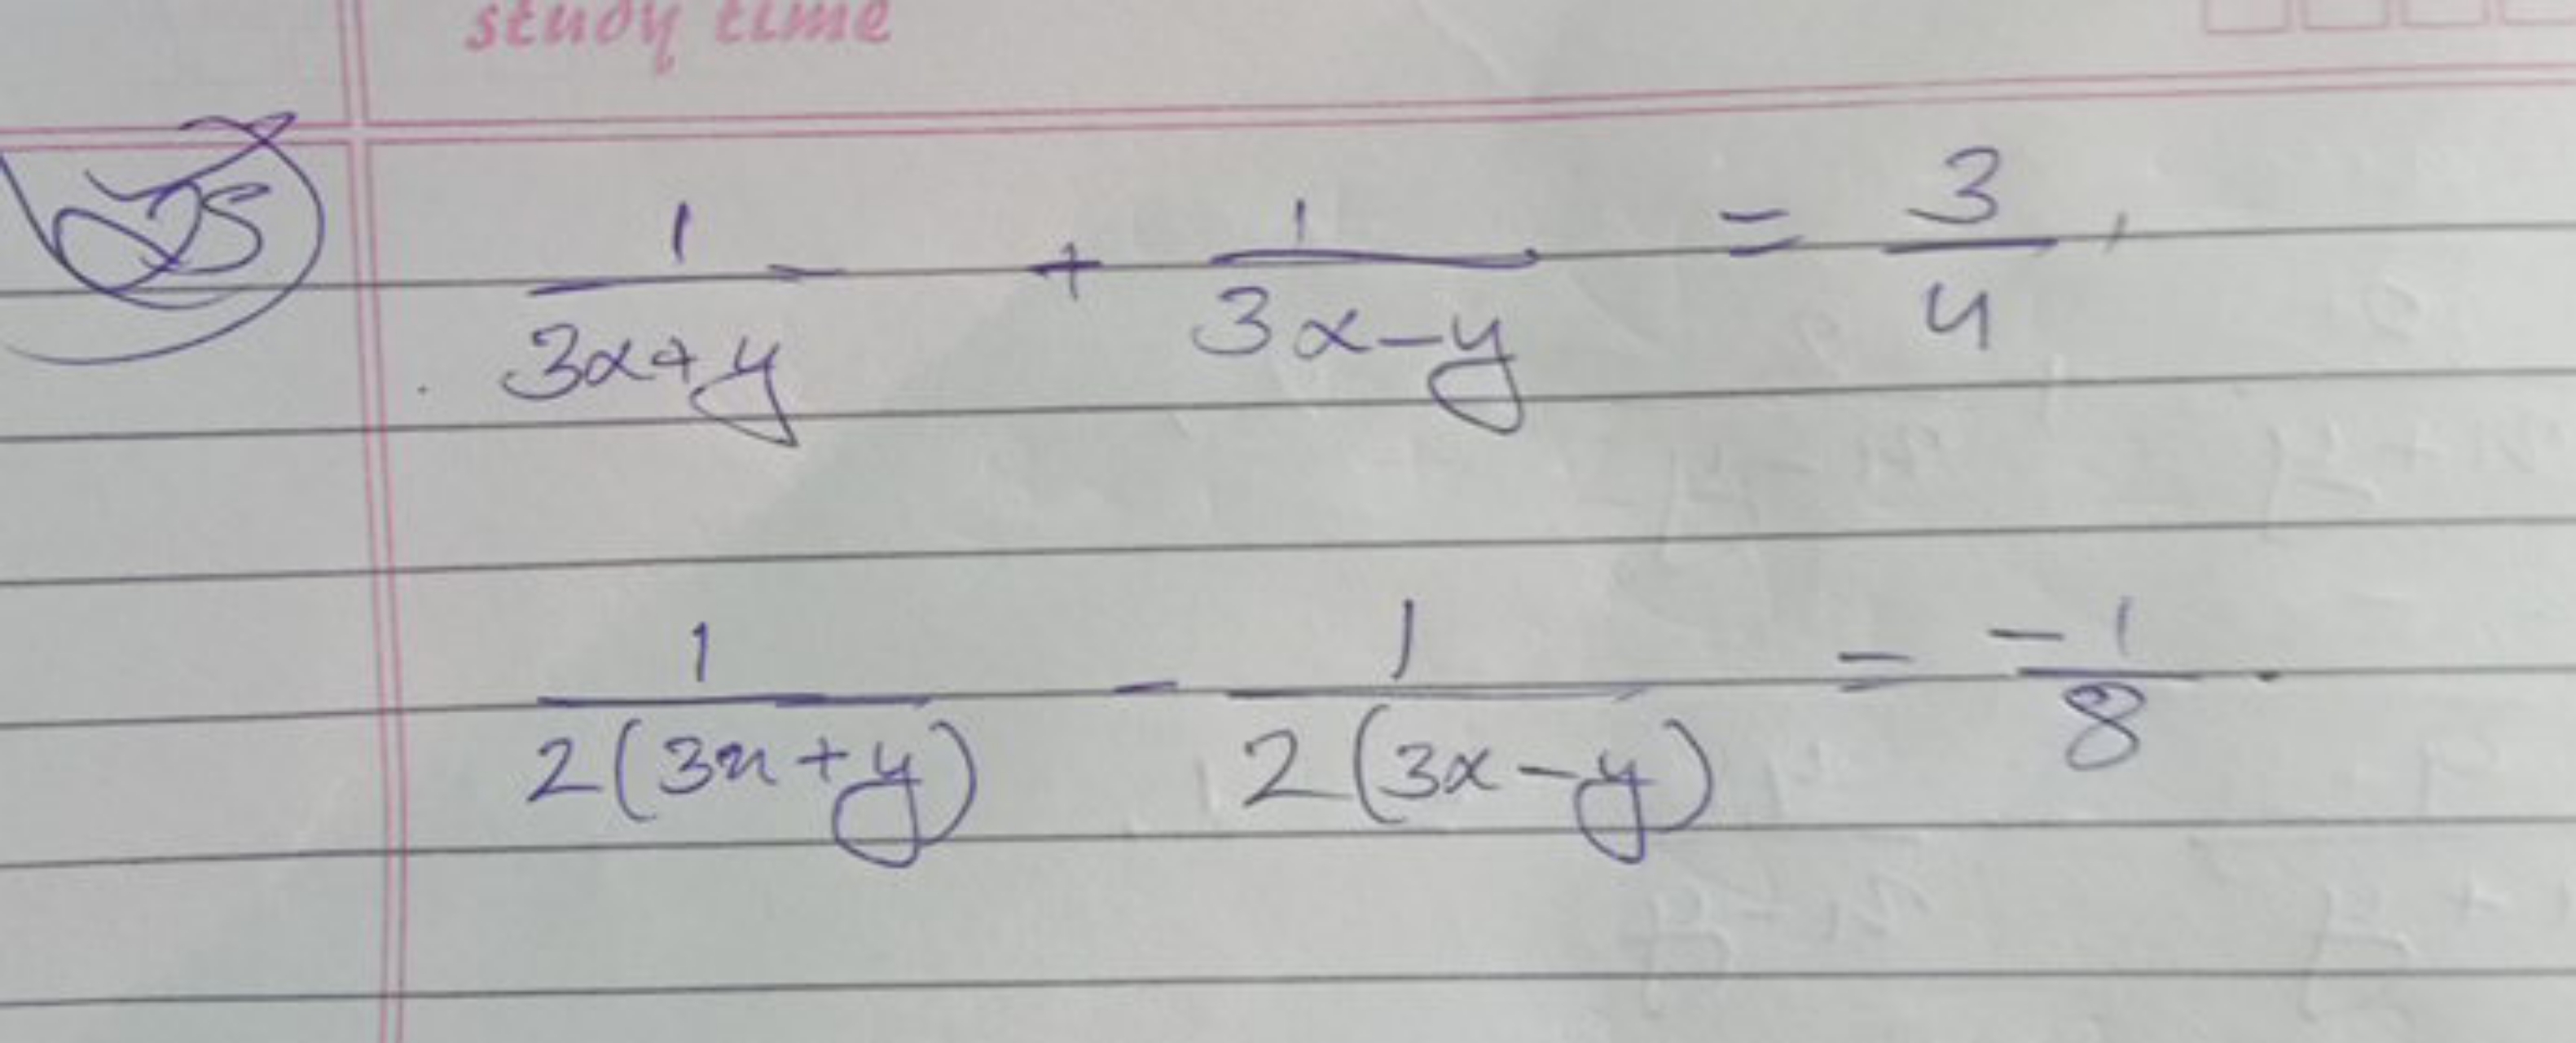 study time
Q5 1/(3x+y) + 1/(3x-y) = 3/4,
1/(2(3x+y)) - 1/(2(3x-y)) = -1/8.